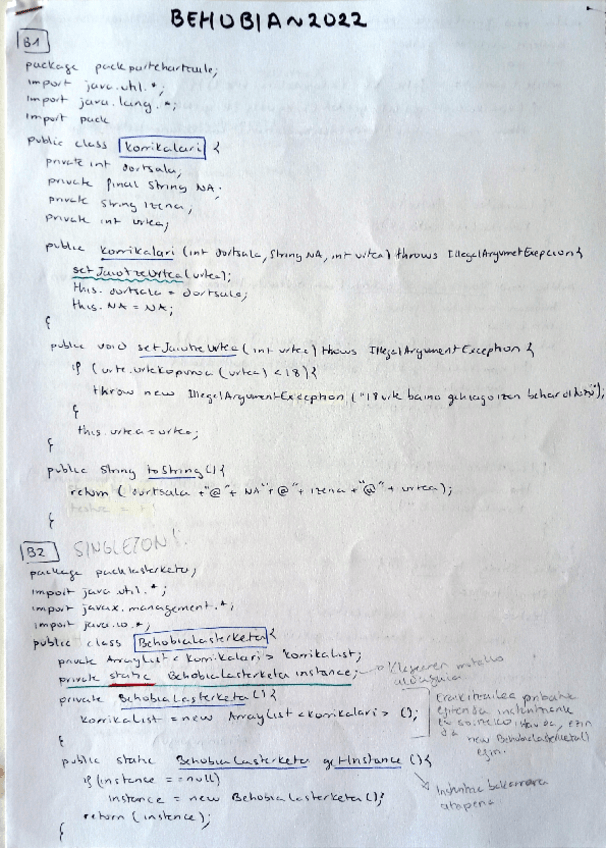 BEHOBIA 2022
B1
package packpartehartzaile;
import java.util.*;
import java.lang.*;
import pack
public class Korrikalari {
private int dortsala;
private final String NA;
private String izena;
private int urtea;
public Korrikalari (int dortsala, String NA, int urtea) throws IllegalArgumetExepcion{
setJaiotzeUrtea(urtea);
this.dortsala = dortsala;
this.NA = NA;
{
public void setJaiotzeUrtea (int urtea) thows IllegalArgumentException {
if (urte.urteKopurua (urtea) < 18){
throw new IllegalArgumentException ("18 urte baino gehiago izan behar
{
this.urtea = urtea;
{
public String toString(){
return (dortsala +"@"+ NA"+@"+ izena +"@"+ urtea);
{
B2 SINGLETON!
package packlasterketa;
import java.util.*;
import javax.management.*;
import java.io.*;
public class BehobiaLasterketa{
private ArrayList<Korrikalari> Korrikalist;
private static BehobiaLasterketa instance; Klasearen motako aldagaia
private BehobiaLasterketa(){
Korrikalist = new ArrayList<Korrikalari>();
Eraikitzailea pribatua
ezin
da new BehobiaLasterketa()
egin.
{
public static BehobiaLasterketa getInstance (){
if(instance == null)
instance = new BehobiaLasterketa();
Instantzia bakarrera
atzipena
return (instance);
{